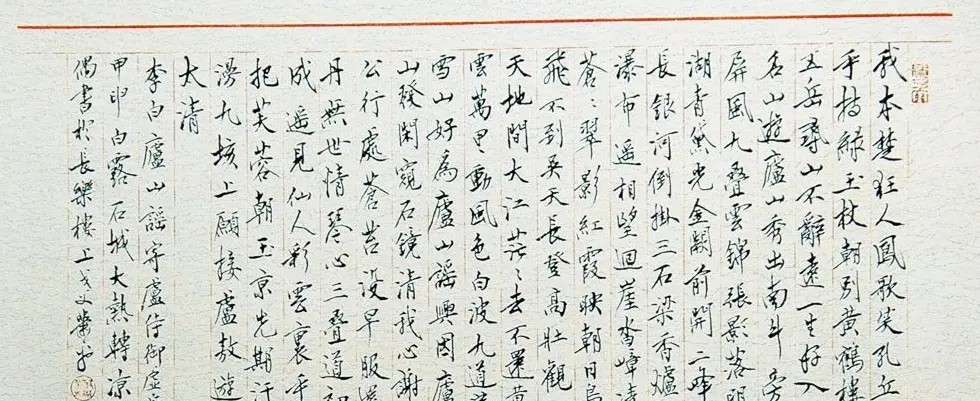 我本楚狂人鳳歌笑孔丘
手持綠玉杖朝別黃鶴樓
五岳尋山不辭遠一生好入
名山遊廬山秀出南斗旁
屏風九叠雲錦張影落明
湖青黛光金闕前開二峰
長銀河倒掛三石梁香爐
瀑布遥相望迴崖沓嶂凌
蒼〻翠影紅霞映朝日鳥
飛不到吳天長登高壯觀
天地間大江茫〻去不還黃
雲萬里動風色白波九道流
雪山好爲廬山謠興因廬
山發閑窺石鏡清我心謝
公行處蒼苔没早服還
丹無世情琴心三叠道初
成遥見仙人彩雲裏手
把芙蓉朝玉京先期汗
漫九垓上願接盧敖遊
太清
李白廬山謠寄盧侍御虛
甲申白露石城大熱轉凉
偶書於長樂樓上